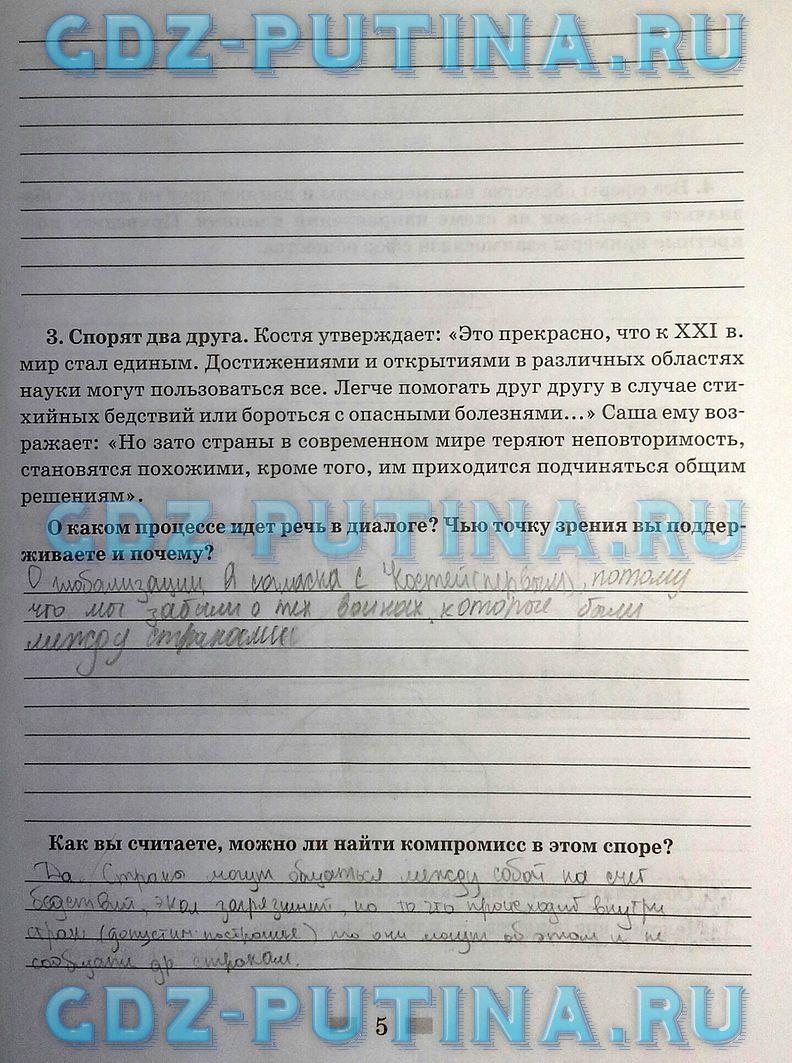 GDZ-PUTINA.RU
3. Спорят два друга. Костя утверждает: «Это прекрасно, что к XXI в.
мир стал единым. Достижениями и открытиями в различных областях
науки могут пользоваться все. Легче помогать друг другу в случае сти-
хийных бедствий или бороться с опасными болезнями...» Саша ему воз-
ражает: «Но зато страны в современном мире теряют неповторимость,
становятся похожими, кроме того, им приходится подчиняться общим
решениям».
GDZ-PUTINA.RU
О каком процессе идет речь в диалоге? Чью точку зрения вы поддер-
живаете и почему?
О глобализации. Я согласна с Костей (первым), потому
что мы забыли о тех войнах, которые были
между странами
Как вы считаете, можно ли найти компромисс в этом споре?
Да. Страны могут общаться между собой на счёт
бедствий, экол загрязнений, но то что происходит внутри
стран (допустим: ) то они могут об этом и не
сообщать др. странам.
GDZ-PUTINA.RU
5